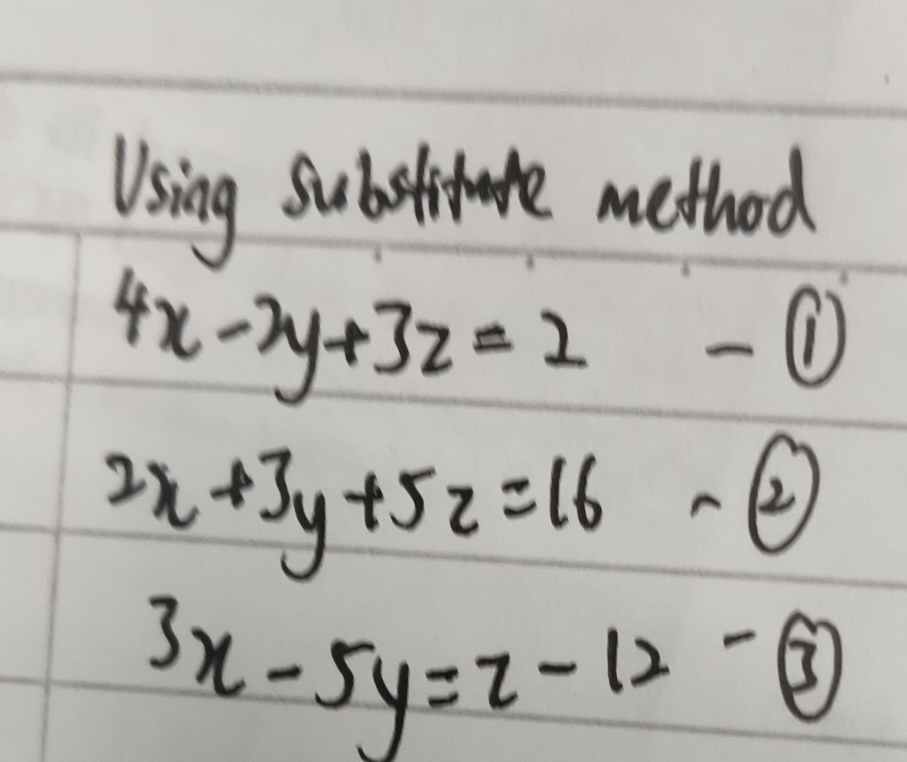 Using substitute method
4x - 2y + 3z = 2 - ①
2x + 3y + 5z = 16 - ②
3x - 5y = z - 12 - ③